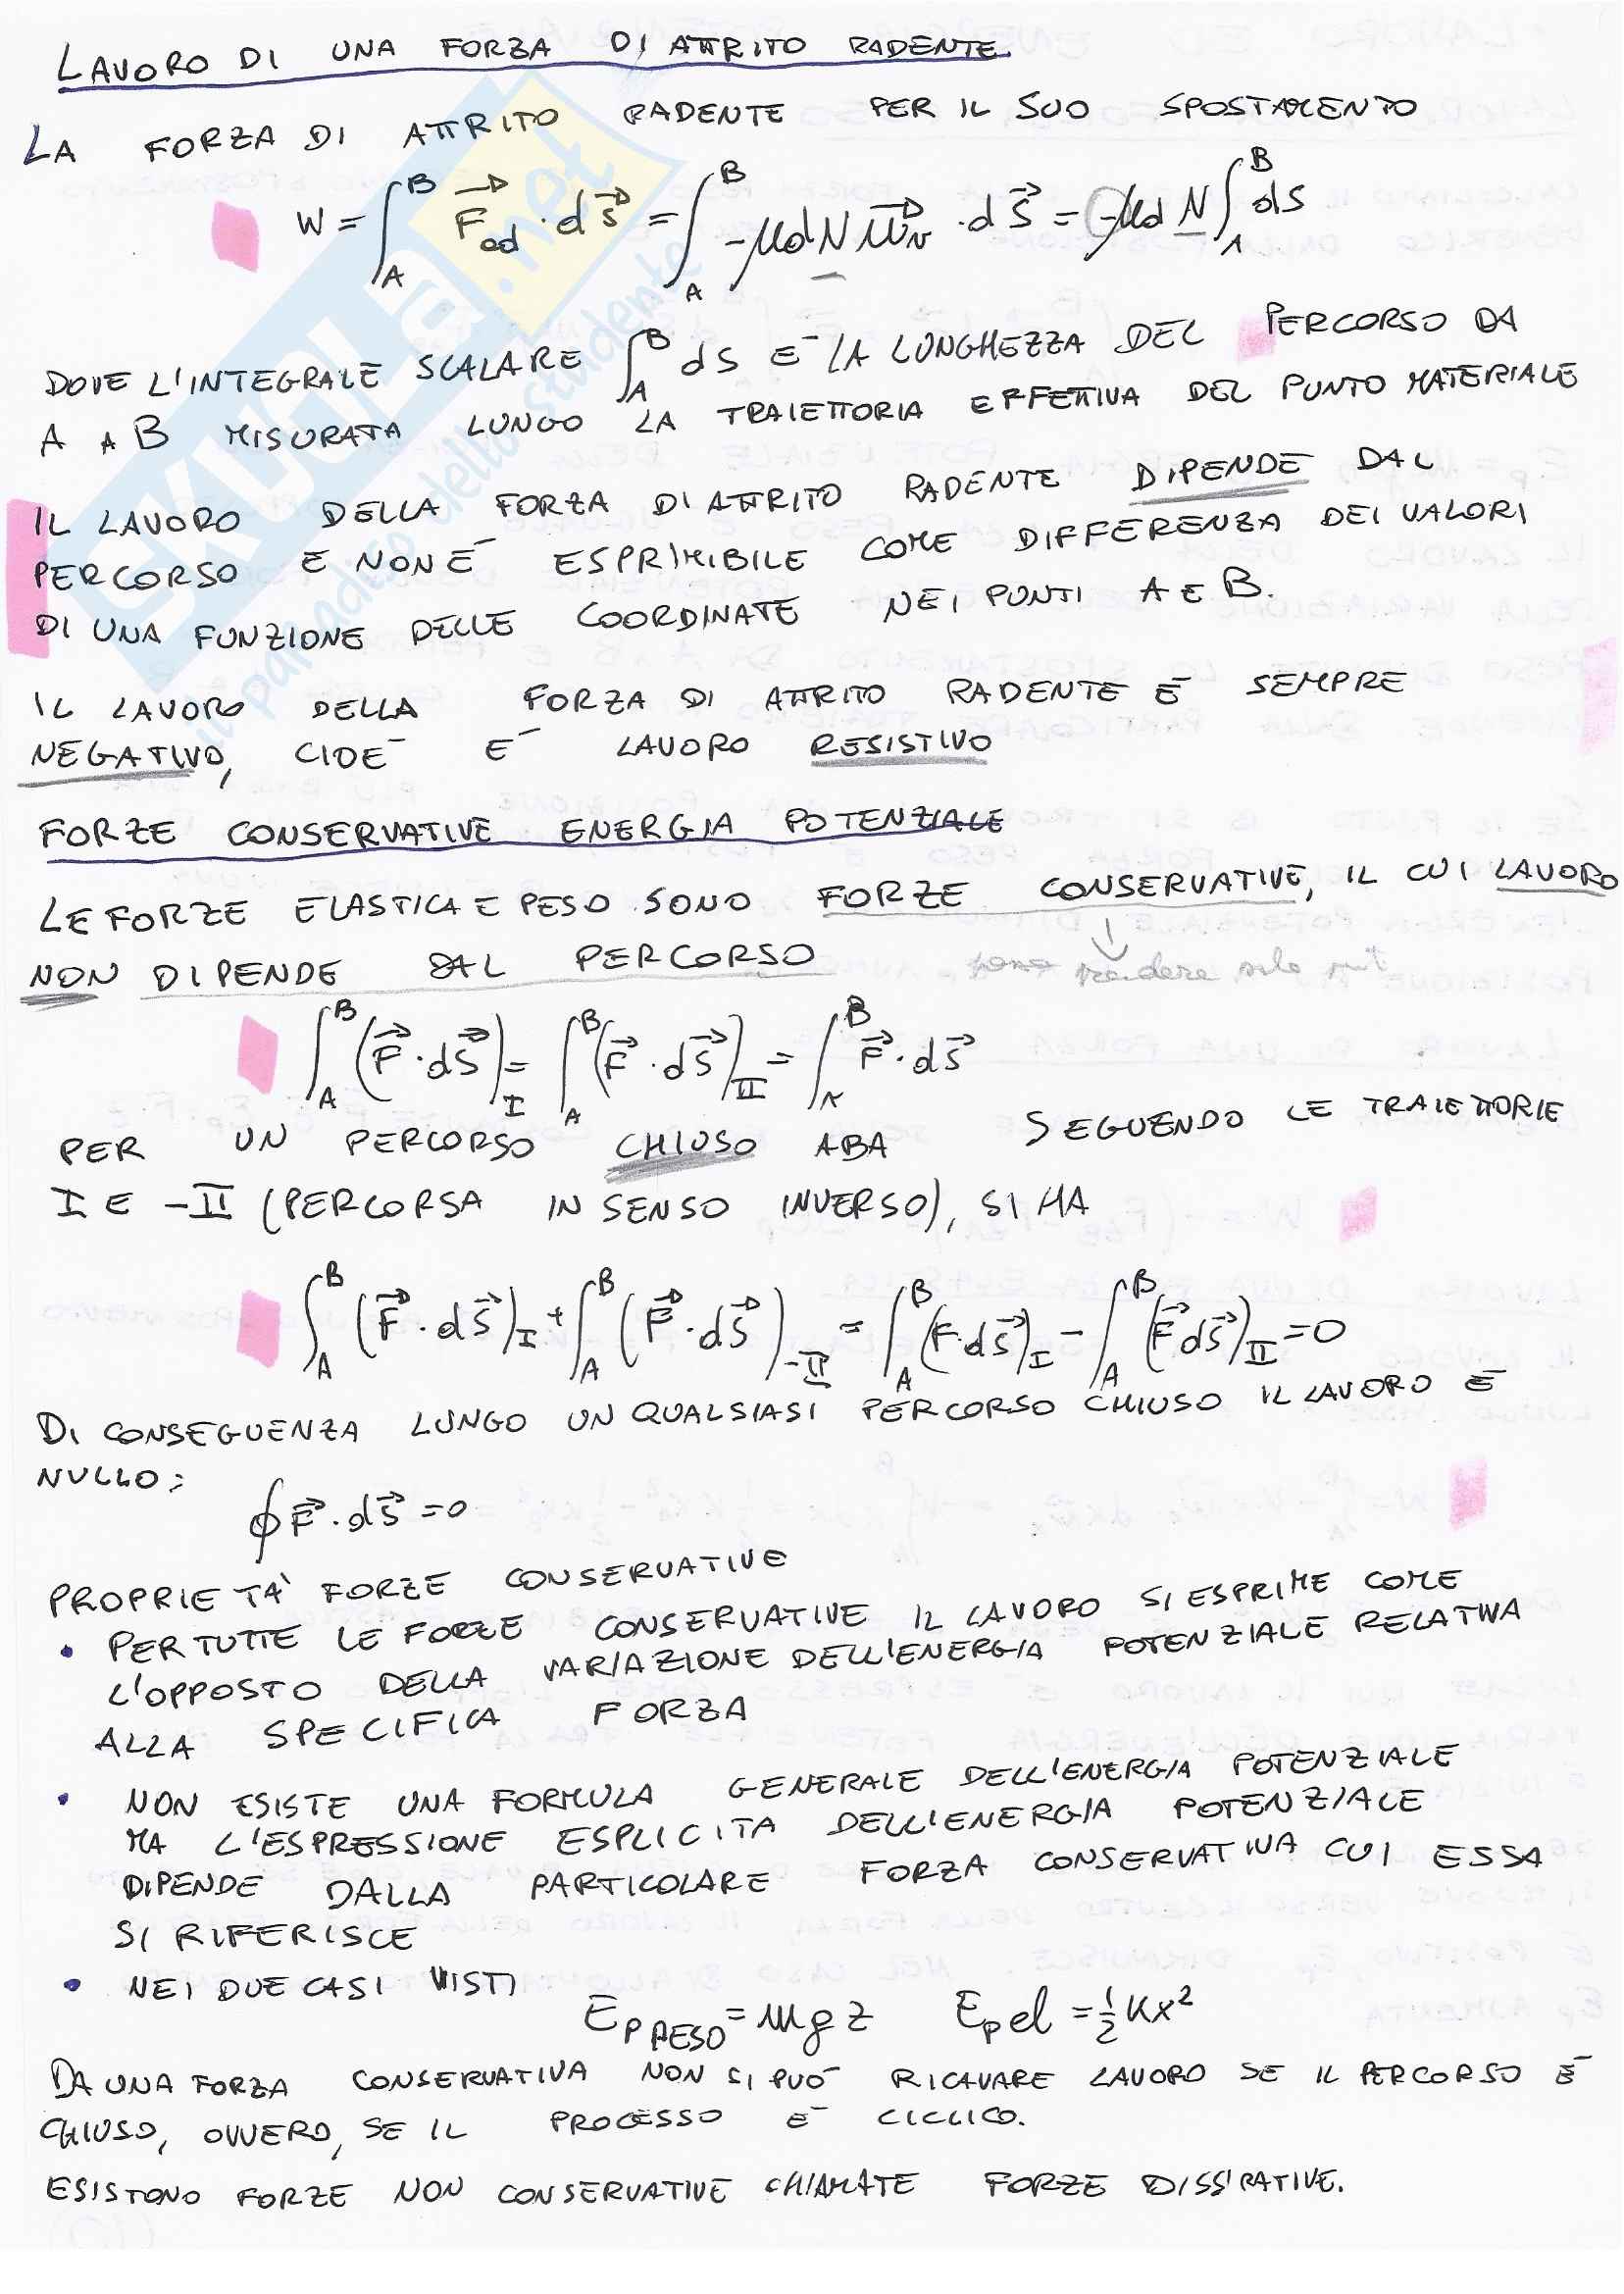 LAVORO DI UNA FORZA DI ATTRITO RADENTE
LA FORZA DI ATTRITO RADENTE PER IL SUO SPOSTAMENTO
W = ∫_A^B F⃗_ad · ds⃗ = ∫_A^B -μd N u⃗_N · ds⃗ = -μd N ∫_A^B ds
DOVE L'INTEGRALE SCALARE ∫_A^B ds E¯ LA LUNGHEZZA DEL PERCORSO DA
A A B MISURATA LUNGO LA TRAIETTORIA EFFETTIVA DEL PUNTO MATERIALE
IL LAVORO DELLA FORZA DI ATTRITO RADENTE DIPENDE DAL
PERCORSO E NON E¯ ESPRIMIBILE COME DIFFERENZA DEI VALORI
DI UNA FUNZIONE DELLE COORDINATE NEI PUNTI A E B.
IL LAVORO DELLA FORZA DI ATTRITO RADENTE E¯ SEMPRE
NEGATIVO, CIOE¯ E¯ LAVORO RESISTIVO
FORZE CONSERVATIVE ENERGIA POTENZIALE
LE FORZE ELASTICA E PESO SONO FORZE CONSERVATIVE, IL CUI LAVORO
NON DIPENDE DAL PERCORSO
∫_A^B (F⃗ · ds⃗)_I = ∫_A^B (F⃗ · ds⃗)_II = ∫_A^B F⃗ · ds⃗
PER UN PERCORSO CHIUSO ABA SEGUENDO LE TRAIETTORIE
I E -II (PERCORSA IN SENSO INVERSO), SI HA
∫_A^B (F⃗ · ds⃗)_I + ∫_A^B (F⃗ · ds⃗)_-II = ∫_A^B (F · ds⃗)_I - ∫_A^B (F⃗ ds⃗)_II = 0
DI CONSEGUENZA LUNGO UN QUALSIASI PERCORSO CHIUSO IL LAVORO E¯
NULLO:
∮ F⃗ · ds⃗ = 0
PROPRIETA' FORZE CONSERVATIVE
• PER TUTTE LE FORZE CONSERVATIVE IL LAVORO SI ESPRIME COME
L'OPPOSTO DELLA VARIAZIONE DELL'ENERGIA POTENZIALE RELATIVA
ALLA SPECIFICA FORZA
• NON ESISTE UNA FORMULA GENERALE DELL'ENERGIA POTENZIALE
MA L'ESPRESSIONE ESPLICITA DELL'ENERGIA POTENZIALE
DIPENDE DALLA PARTICOLARE FORZA CONSERVATIVA CUI ESSA
SI RIFERISCE
• NEI DUE CASI VISTI E_P PESO = mgz E_p el = ½ Kx²
DA UNA FORZA CONSERVATIVA NON SI PUO¯ RICAVARE LAVORO SE IL PERCORSO E¯
CHIUSO, OVVERO, SE IL PROCESSO E¯ CICLICO.
ESISTONO FORZE NON CONSERVATIVE CHIAMATE FORZE DISSIPATIVE.
SKUOLA.net
il paradiso dello studente